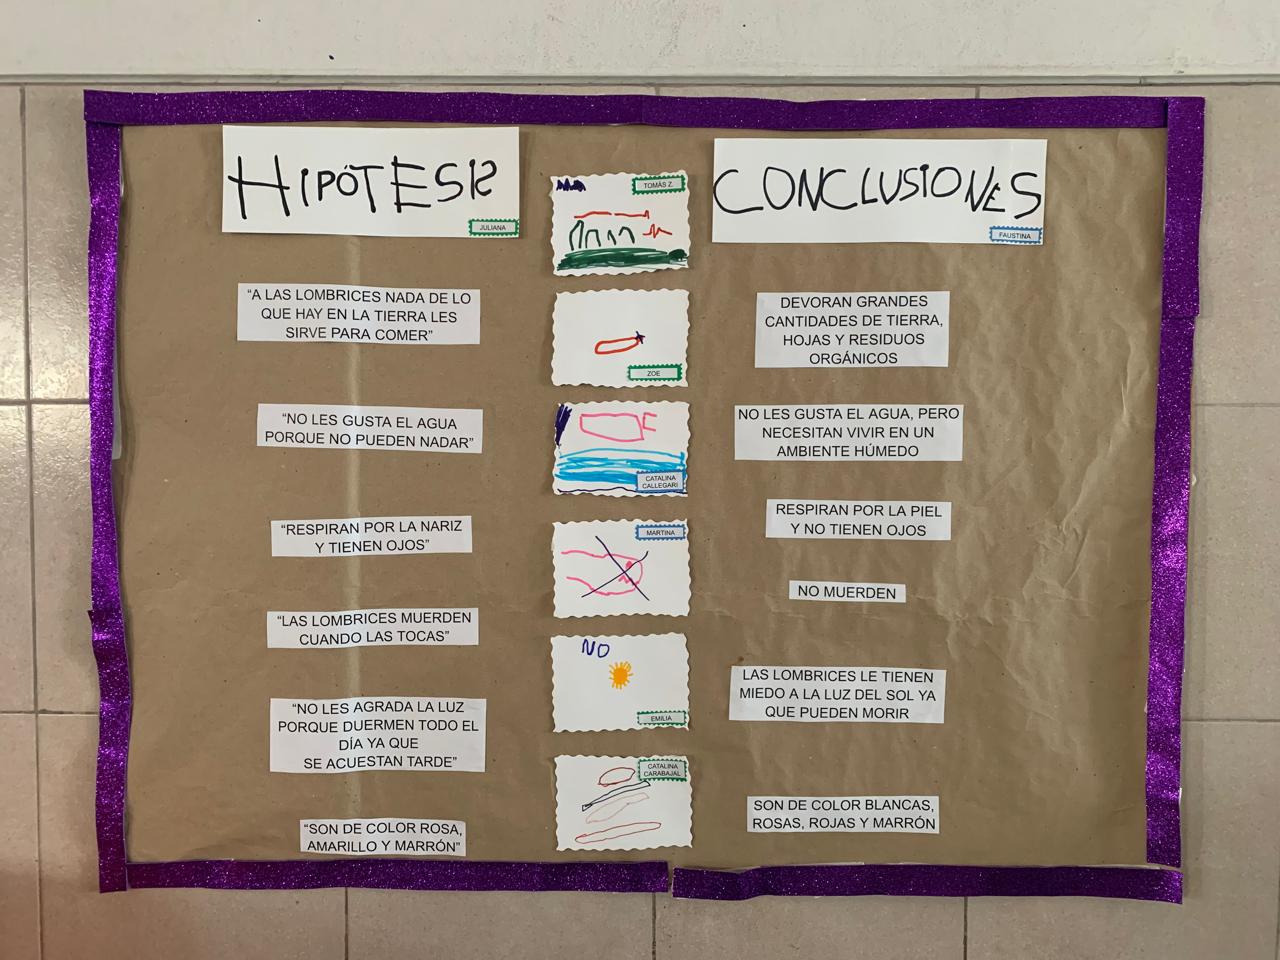 HIPÓTESIS
JULIANA
"A LAS LOMBRICES NADA DE LO
QUE HAY EN LA TIERRA LES
SIRVE PARA COMER"
"NO LES GUSTA EL AGUA
PORQUE NO PUEDEN NADAR"
"RESPIRAN POR LA NARIZ
Y TIENEN OJOS"
"LAS LOMBRICES MUERDEN
CUANDO LAS TOCAS"
"NO LES AGRADA LA LUZ
PORQUE DUERMEN TODO EL
DÍA YA QUE
SE ACUESTAN TARDE"
"SON DE COLOR ROSA,
AMARILLO Y MARRÓN"
TOMÁS Z.
ZOE
CATALINA
CALLEGARI
MARTINA
NO
EMILIA
CATALINA
CARABAJAL
CONCLUSIONES
FAUSTINA
DEVORAN GRANDES
CANTIDADES DE TIERRA,
HOJAS Y RESIDUOS
ORGÁNICOS
NO LES GUSTA EL AGUA, PERO
NECESITAN VIVIR EN UN
AMBIENTE HÚMEDO
RESPIRAN POR LA PIEL
Y NO TIENEN OJOS
NO MUERDEN
LAS LOMBRICES LE TIENEN
MIEDO A LA LUZ DEL SOL YA
QUE PUEDEN MORIR
SON DE COLOR BLANCAS,
ROSAS, ROJAS Y MARRÓN